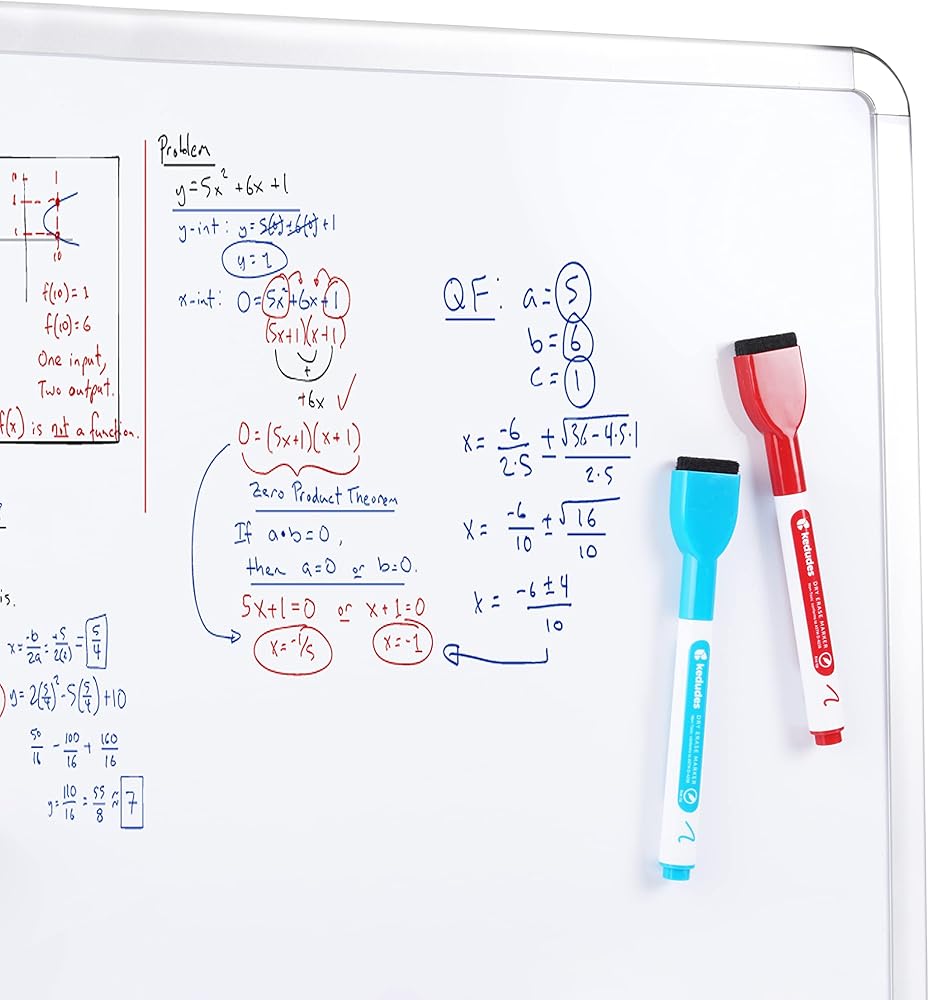 1
10
f(10)=1
f(10)=6
One input,
Two output.
f(x) is not a function.
is.
x=-b/2a=+5/2(2)=5/4
y=2(5/4)²-5(5/4)+10
50/16-100/16+160/16
y=110/16=55/8≈7
Problem
y=5x²+6x+1
y-int: y=5(0)+6(0)+1
y=1
x-int: 0=5x²+6x+1
(5x+1)(x+1)
+
+6x ✓
0=(5x+1)(x+1)
Zero Product Theorem
If a•b=0,
then a=0 or b=0.
5x+1=0 or x+1=0
x=-1/5 x=-1
QF: a=5
b=6
c=1
x=-6/2·5±√36-4·5·1/2·5
x=-6/10±√16/10
x=-6±4/10
kedudes
DRY ERASE MARKER
kedudes
DRY ERASE MARKER